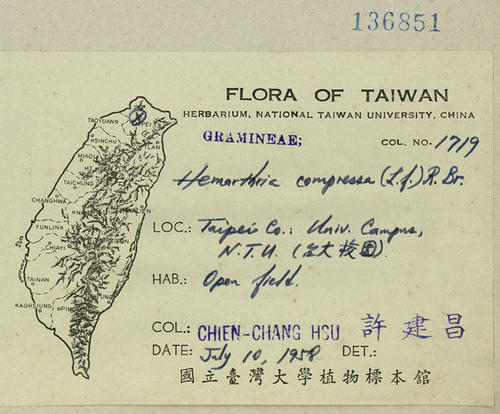 136851
FLORA OF TAIWAN
HERBARIUM, NATIONAL TAIWAN UNIVERSITY, CHINA
GRAMINEAE; COL. NO. 1719
Hemarthria compressa (L.f.) R. Br.
LOC.: Taipei Co.: Univ. Campus,
N.T.U. (台大校园).
HAB.: Open field.
COL.: CHIEN-CHANG HSU 許建昌
DATE: July 10, 1958 DET.:
國立臺灣大學植物標本館
TAOYUAN
HSINCHU
TAICHUNG
CHANGHWA
YUNLIN
CHIAYI
TAINAN
KAOHSIUNG